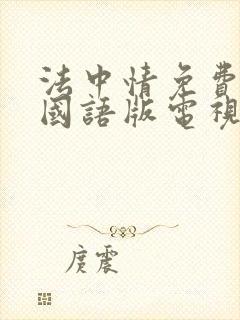 法中情免費
國語版電視
庹震